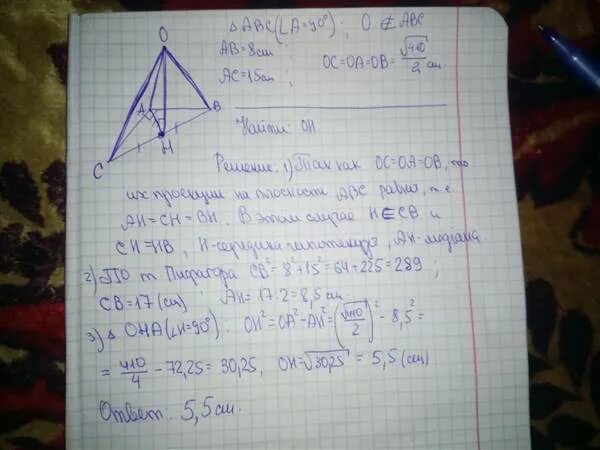 △ ABC (∠A=90°) ; O ∉ ABC
AB = 8 см ;
AC = 15 см ;
OC=OA=OB= √410/2 см
Найти: OH.
O
A
B
C
H
Решение: 1) Так как OC=OA=OB, то
их проекции на плоскости ABC равны, т.е.
AH=CH=BH. В этом случае H∈CB и
CH=HB, H-середина гипотенузы, AH-медиана
2) По т. Пифагора CB²=8²+15²=64+225=289 ;
CB=17 (см) ; AH=17:2=8,5 см
3) △ OHA (∠H=90°): OH²=OA²-AH²=(√410/2)²-8,5²=
= 410/4 - 72,25 = 30,25, OH=√30,25 = 5,5 (см)
Ответ: 5,5 см.